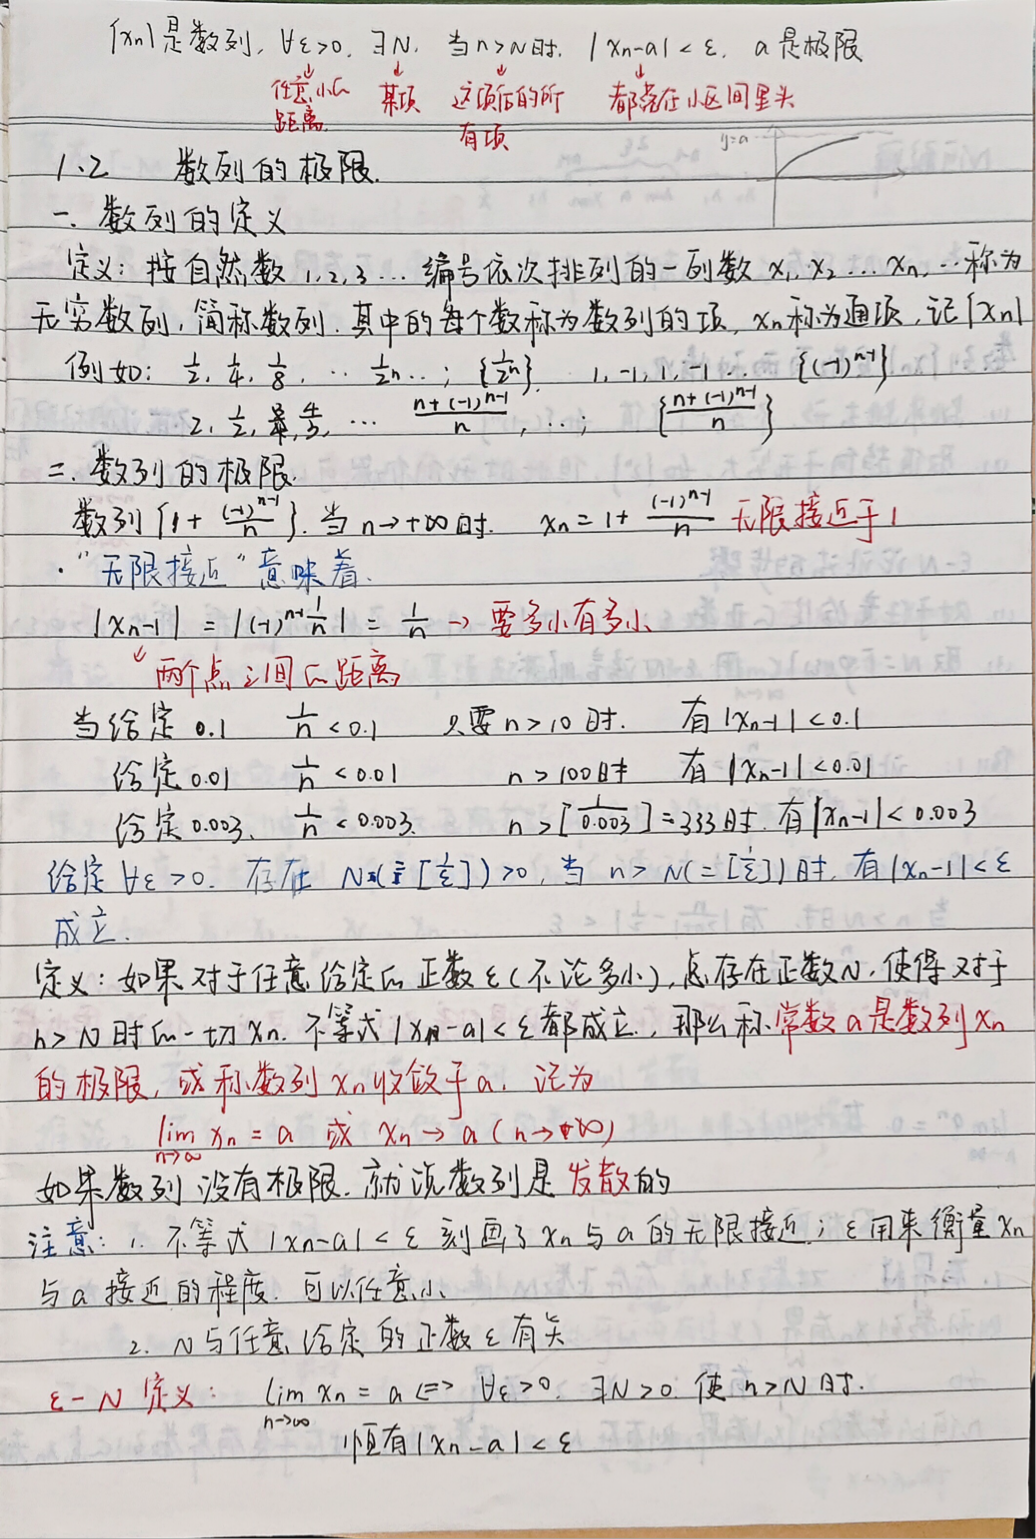 {xn}是数列, ∀ε>0, ∃N, 当n>N时, |xn-a|<ε, a是极限
任意小的距离 某项 这项后的所有项 都落在小区间里头
y=a
1.2 数列的极限.
一. 数列的定义
定义: 按自然数1,2,3…编号依次排列的一列数x₁,x₂…xn,…称为
无穷数列,简称数列.其中的每个数称为数列的项,xn称为通项,记{xn}
例如: 1/2, 1/4, 1/8, … 1/2ⁿ…; {1/2ⁿ}. 1,-1,1,-1… {(-1)ⁿ⁻¹}
2, 1/2, 4/3, … (n+(-1)ⁿ⁻¹)/n, …; {(n+(-1)ⁿ⁻¹)/n}
二. 数列的极限.
数列{1+(-1)ⁿ⁻¹/n}.当n→+∞时. xn=1+(-1)ⁿ⁻¹/n 无限接近于1
·"无限接近"意味着.
|xn-1| = |(-1)ⁿ⁻¹ 1/n| = 1/n → 要多小有多小
两个点之间的距离
当给定0.1 1/n<0.1 只要n>10时. 有|xn-1|<0.1
给定0.01 1/n<0.01 n>100时 有|xn-1|<0.01
给定0.003. 1/n<0.003. n>[1/0.003]=333时.有|xn-1|<0.003
给定∀ε>0. 存在N(=[1/ε])>0,当n>N(=[1/ε])时,有|xn-1|<ε
成立.
定义:如果对于任意给定的正数ε(不论多小),总存在正数N,使得对于
n>N时的一切xn.不等式|xn-a|<ε都成立,那么称常数a是数列xn
的极限,或称数列xn收敛于a.记为
lim n→∞ xn=a 或 xn→a(n→∞)
如果数列没有极限.就说数列是发散的
注意:1. 不等式|xn-a|<ε刻画了xn与a的无限接近;ε用来衡量xn
与a接近的程度.可以任意小
2. N与任意给定的正数ε有关
ε-N定义: lim n→∞ xn=a <=> ∀ε>0. ∃N>0.使n>N时.
恒有|xn-a|<ε